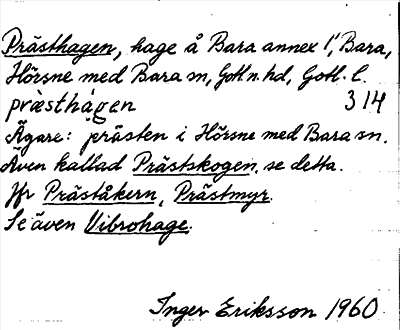 Prästhagen, hage å Bara annex 1, Bara,
Hörsne med Bara sn, Gotl. n. hd, Gotl. l.
præsthágen 314
Ägare: prästen i Hörsne med Bara sn.
Även kallad Prästskogen, se detta.
Jfr Präståkern, Prästmyr.
Se även Vibrohage.
Inger Eriksson 1960